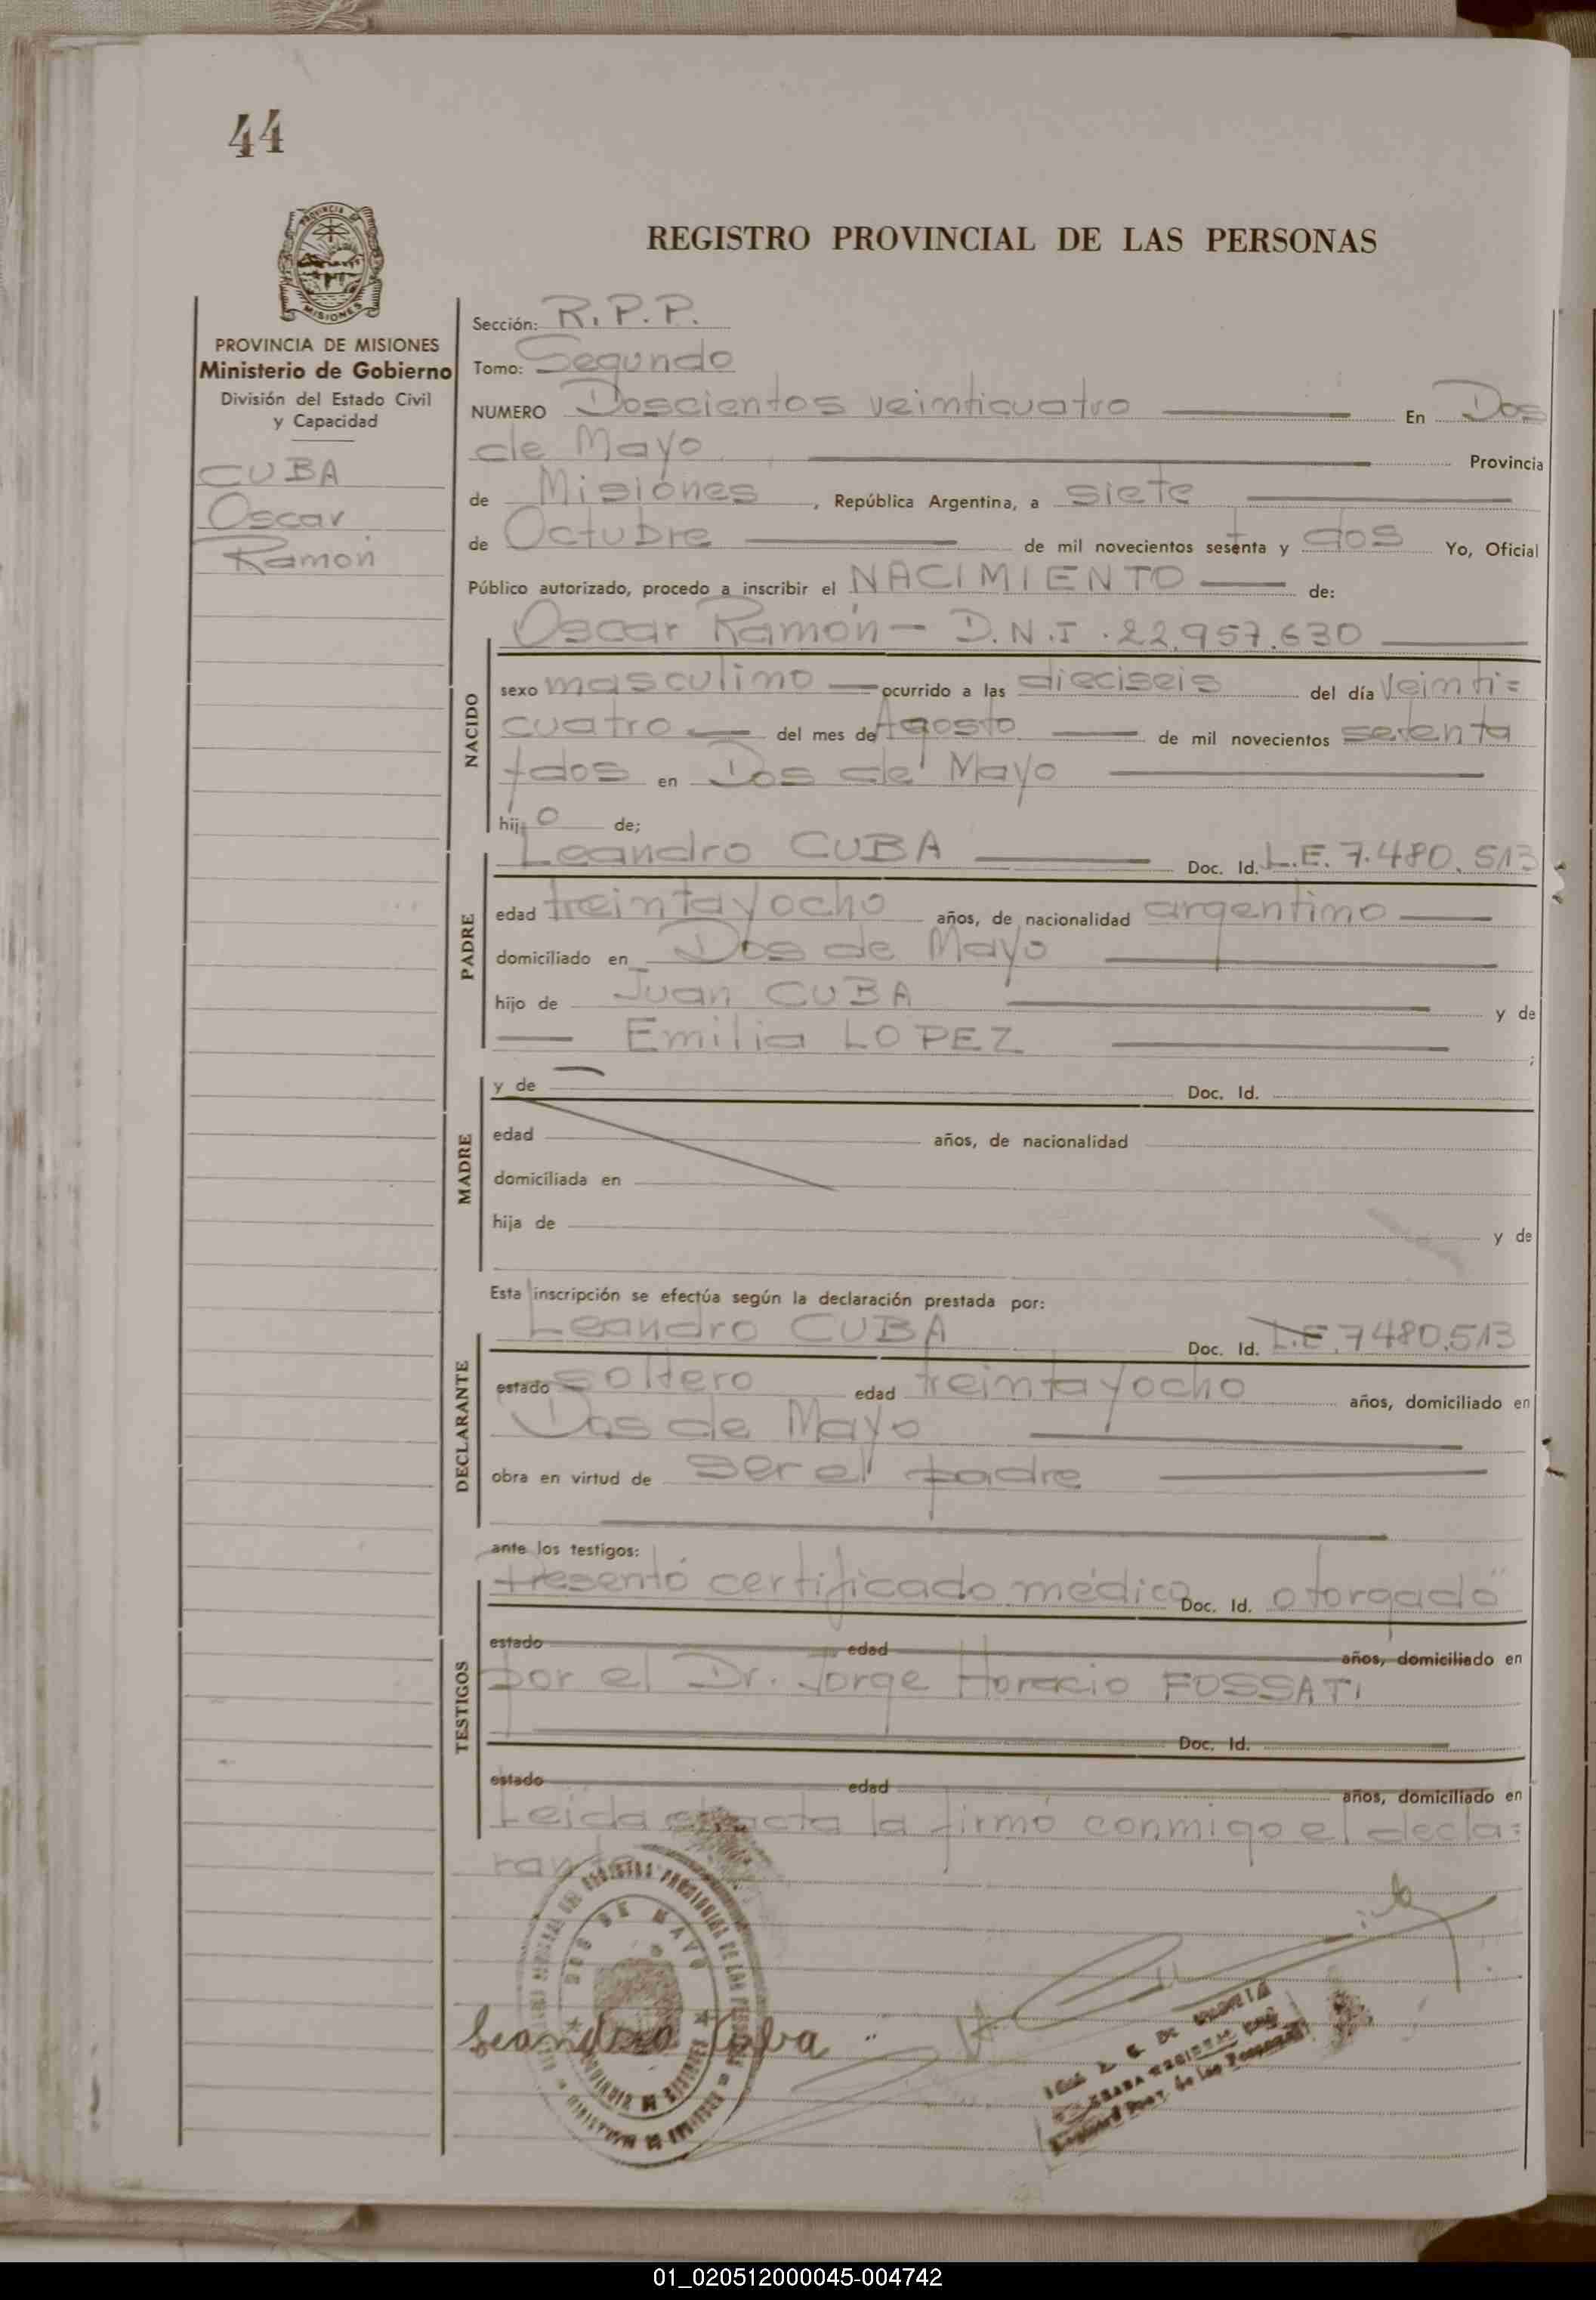 44
PROVINCIA DE
MISIONES
REGISTRO PROVINCIAL DE LAS PERSONAS
PROVINCIA DE MISIONES
Ministerio de Gobierno
División del Estado Civil
y Capacidad
CUBA
Oscar
Ramon
Sección: R.P.P.
Tomo: Segundo
NUMERO Doscientos veinticuatro En Dos
de Mayo Provincia
de Misiones, República Argentina, a siete
de Octubre de mil novecientos setenta y dos Yo, Oficial
Público autorizado, procedo a inscribir el NACIMIENTO de:
NACIDO
Oscar Ramón - D.N.I. 22.957.630
sexo masculino ocurrido a las dieciseis del día veinti=
cuatro del mes de Agosto de mil novecientos setenta
y dos en Dos de Mayo
hijo de;
PADRE
Leandro CUBA Doc. Id. L.E. 7.480.513
edad treinta y ocho años, de nacionalidad argentino
domiciliado en Dos de Mayo
hijo de Juan CUBA y de
Emilia LOPEZ ;
MADRE
y de Doc. Id.
edad años, de nacionalidad
domiciliada en
hija de y de
Esta inscripción se efectúa según la declaración prestada por:
DECLARANTE
Leandro CUBA Doc. Id. L.E. 7480.513
estado soltero edad treinta y ocho años, domiciliado en
Dos de Mayo
obra en virtud de ser el padre
ante los testigos:
TESTIGOS
Presentó certificado médico Doc. Id. otorgado
estado edad años, domiciliado en
por el Dr. Jorge Horacio FOSSATI
Doc. Id.
estado edad años, domiciliado en
Leida el acta la firmó conmigo el decla=
rante
DOS DE MAYO
Leandro Cuba
01_020512000045-004742